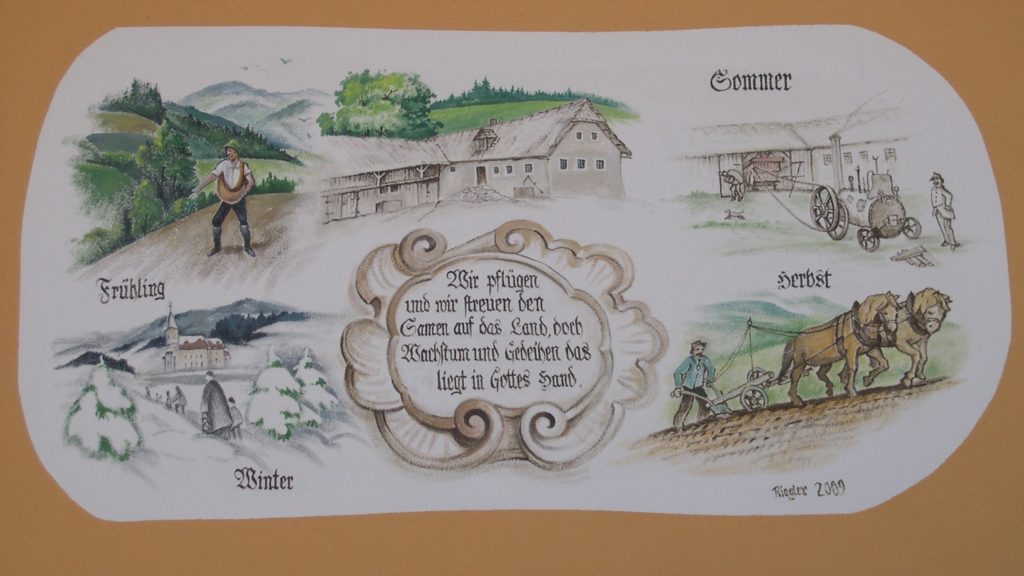 Sommer
Frühling
Herbst
Wir pflügen
und wir streuen den
Samen auf das Land, doch
Wachstum und Gedeihen das
liegt in Gottes Hand.
Winter
Riegler 2009